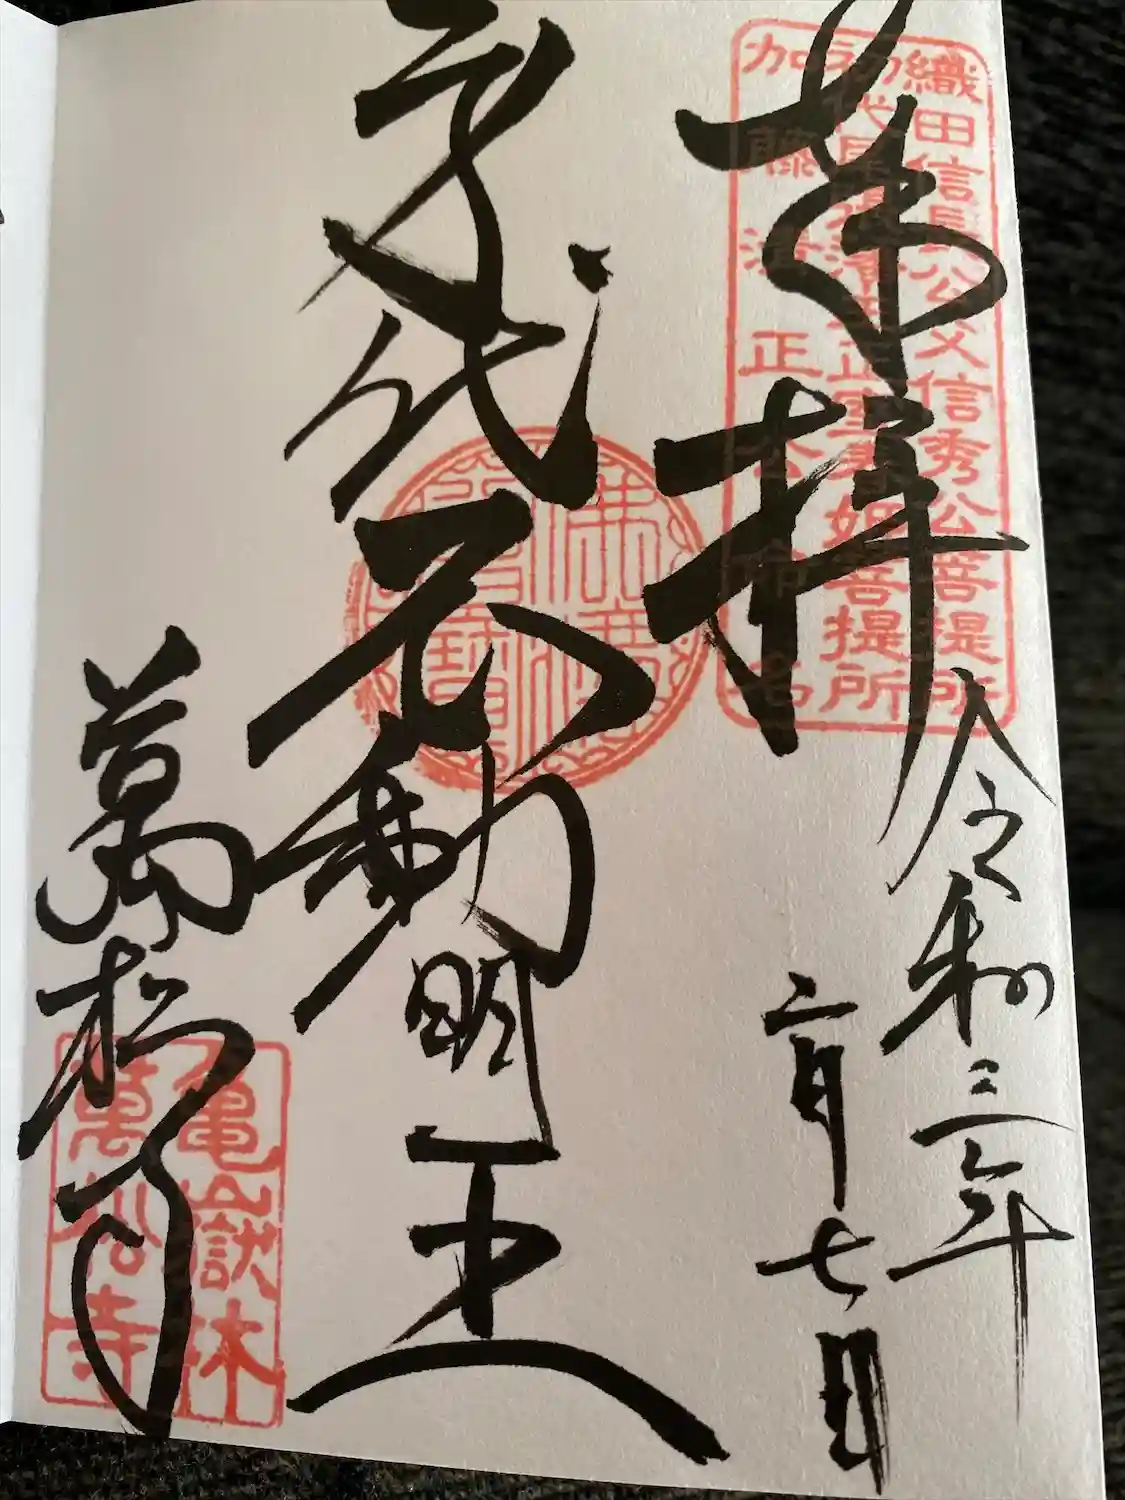 奉拝
令和三年
二月七日
織田信長公父信秀公菩提所
初代尾張藩主正室春姫菩提所
加藤清正公命名
身代不動明王
佛法僧寶
萬松寺
亀岳林
萬松寺